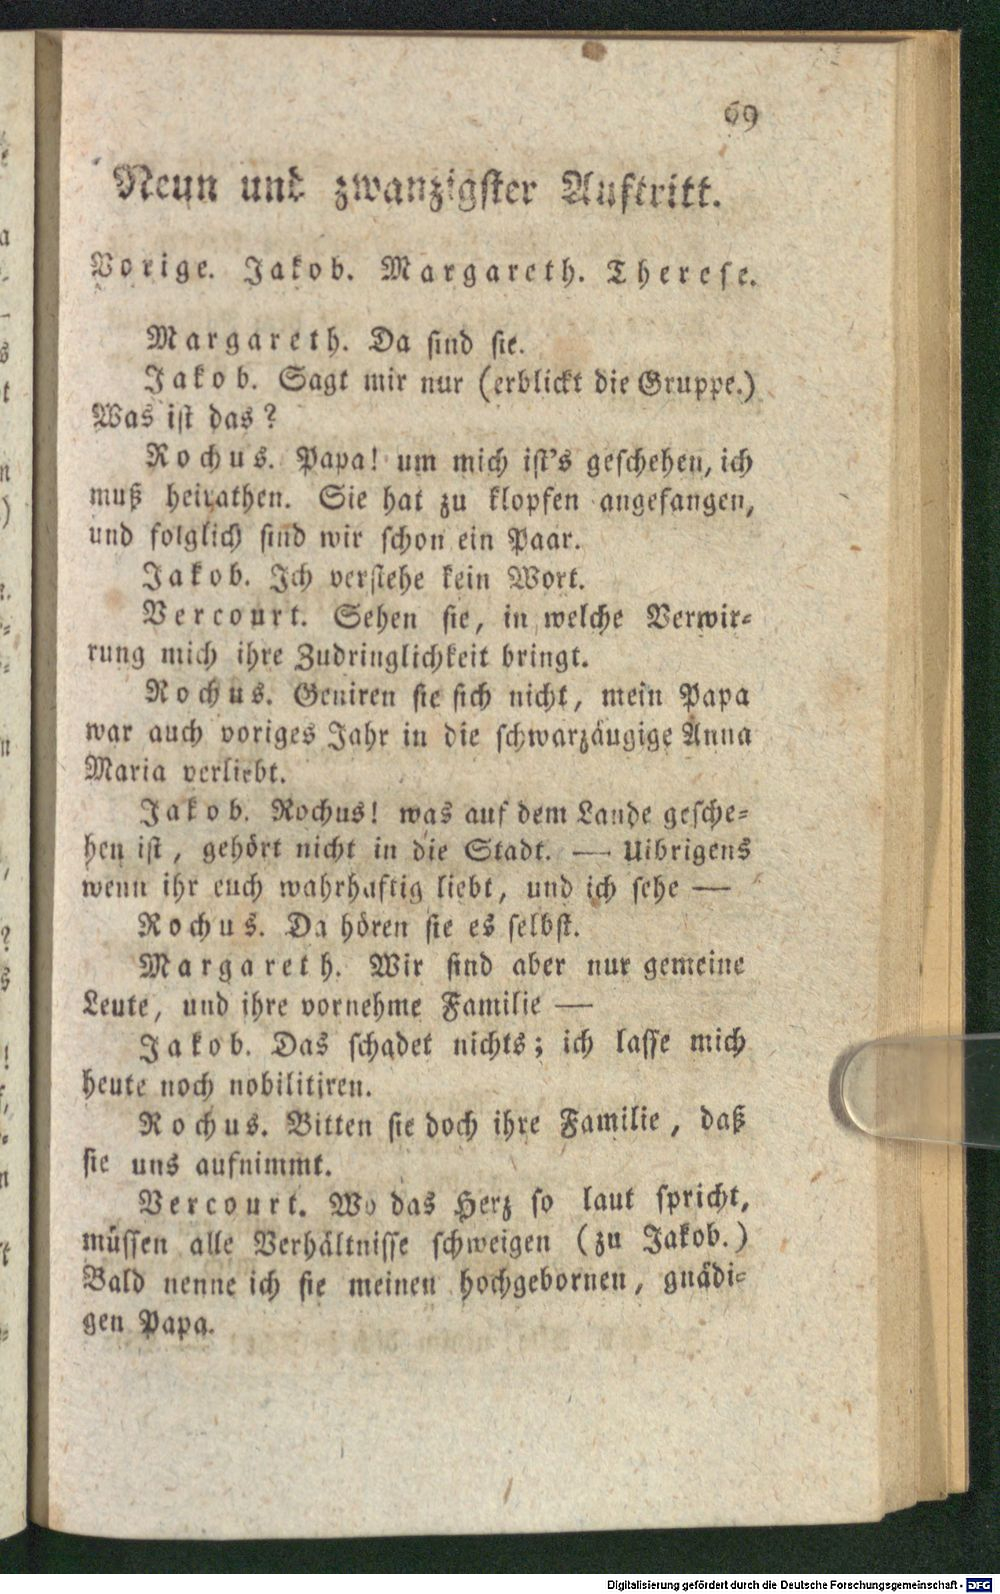 69
Neun und zwanzigster Auftritt.
Vorige. Jakob. Margareth. Therese.
Margareth. Da sind sie.
Jakob. Sagt mir nur (erblickt die Gruppe.)
Was ist das?
Rochus. Papa! um mich ist's geschehen, ich
muß heirathen. Sie hat zu klopfen angefangen,
und folglich sind wir schon ein Paar.
Jakob. Ich verstehe kein Wort.
Vercourt. Sehen sie, in welche Verwir-
rung mich ihre Zudringlichkeit bringt.
Rochus. Geniren sie sich nicht, mein Papa
war auch voriges Jahr in die schwarzäugige Anna
Maria verliebt.
Jakob. Rochus! was auf dem Lande gesche-
hen ist, gehört nicht in die Stadt. — Uibrigens
wenn ihr euch wahrhaftig liebt, und ich sehe —
Rochus. Da hören sie es selbst.
Margareth. Wir sind aber nur gemeine
Leute, und ihre vornehme Familie —
Jakob. Das schadet nichts; ich lasse mich
heute noch nobilitiren.
Rochus. Bitten sie doch ihre Familie, daß
sie uns aufnimmt.
Vercourt. Wo das Herz so laut spricht,
müssen alle Verhältnisse schweigen (zu Jakob.)
Bald nenne ich sie meinen hochgebornen, gnädi-
gen Papa.
Digitalisierung gefördert durch die Deutsche Forschungsgemeinschaft - DFG